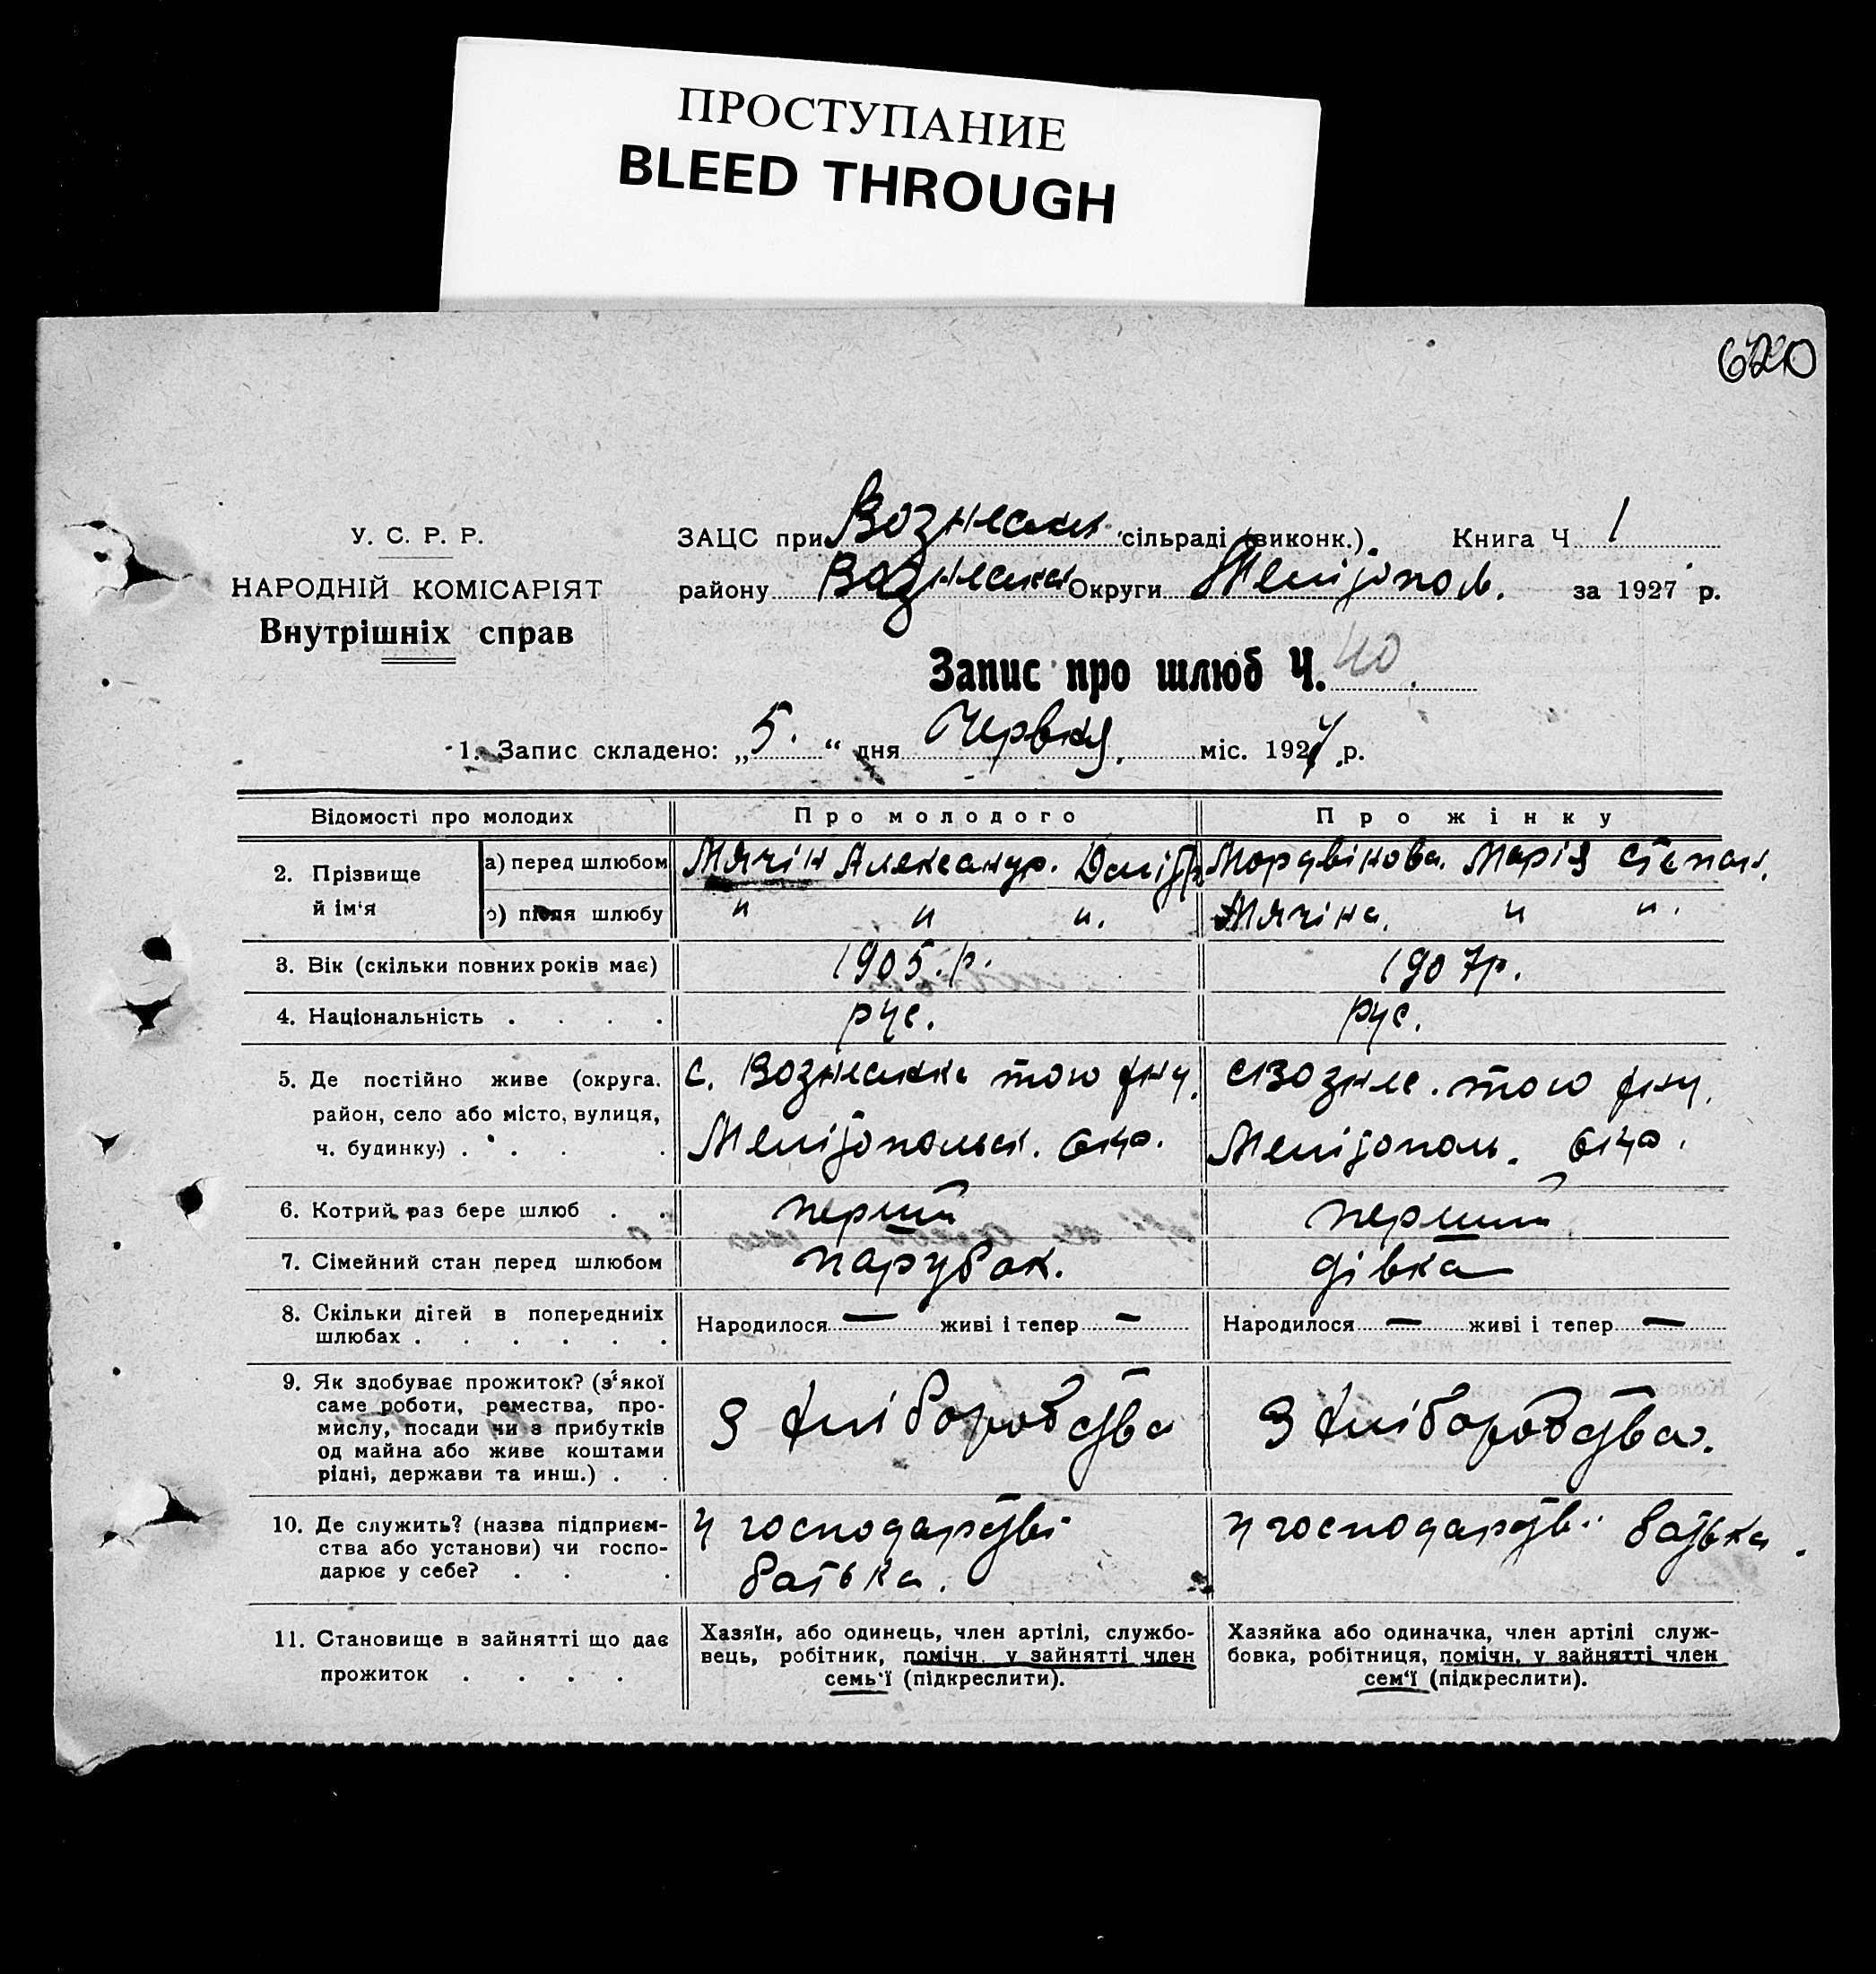 ПРОСТУПАНИЕ
BLEED THROUGH
620
У. С. Р. Р.
НАРОДНІЙ КОМІСАРІЯТ
Внутрішніх справ
ЗАЦС при Вознесен сільраді (виконк.). Книга Ч 1
району Вознесен Округи Мелітопол. за 1927 р.
Запис про шлюб Ч. 40.
1. Запис складено: „5.“ дня Червня. міс. 1927 р.
Відомості про молодих Про молодого Про жінку
2. Прізвище й ім‘я
а) перед шлюбом Мячін Александр. Дмітр Мордвінова. Марія Степан.
б) після шлюбу " " ". Мячіна. " ".
3. Вік (скільки повних років має) 1905.р. 1907р.
4. Національність . . . . рус. рус.
5. Де постійно живе (округа. район, село або місто, вулиця, ч. будинку) . . .
с. Вознесенка того рну.
Мелітопольск. окр.
с Вознес. того рну.
Мелітополь. окр.
6. Котрий раз бере шлюб . . перший перший
7. Сімейний стан перед шлюбом парубок. дівка
8. Скільки дітей в попередниіх шлюбах . . . . . .
Народилося — живі і тепер — Народилося — живі і тепер —
9. Як здобуває прожиток? (з‘якої
саме роботи, ремества, про-
мислу, посади чи з прибутків
од майна або живе коштами
рідні, держави та инш.) . .
З хліборобства З хліборобства.
10. Де служить? (назва підприєм-
ства або установи) чи госпо-
дарює у себе? . . .
у господарстві
батька.
у господарстві батька.
11. Становище в зайнятті що дає
прожиток . . . .
Хазяїн, або одинець, член артілі, службо-
вець, робітник, помічн. у зайнятті член
семь‘ї (підкреслити).
Хазяйка або одиначка, член артілі служ-
бовка, робітниця, помічн. у зайнятті член
сем‘ї (підкреслити).